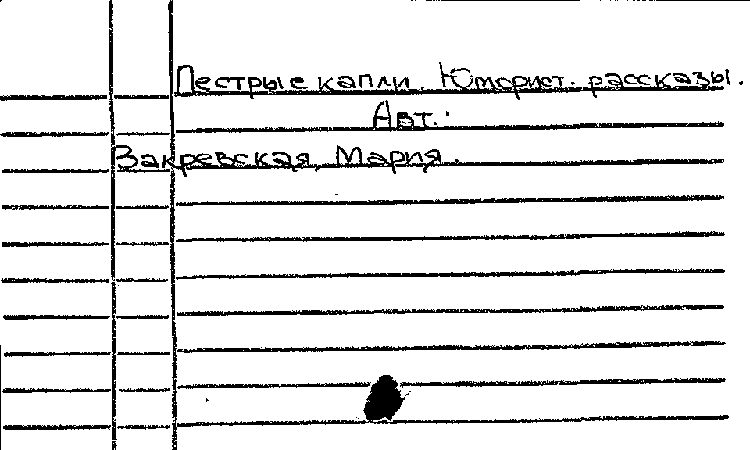 Пестрые капли. Юморист. рассказы.
Авт.:
Закревская, Мария.